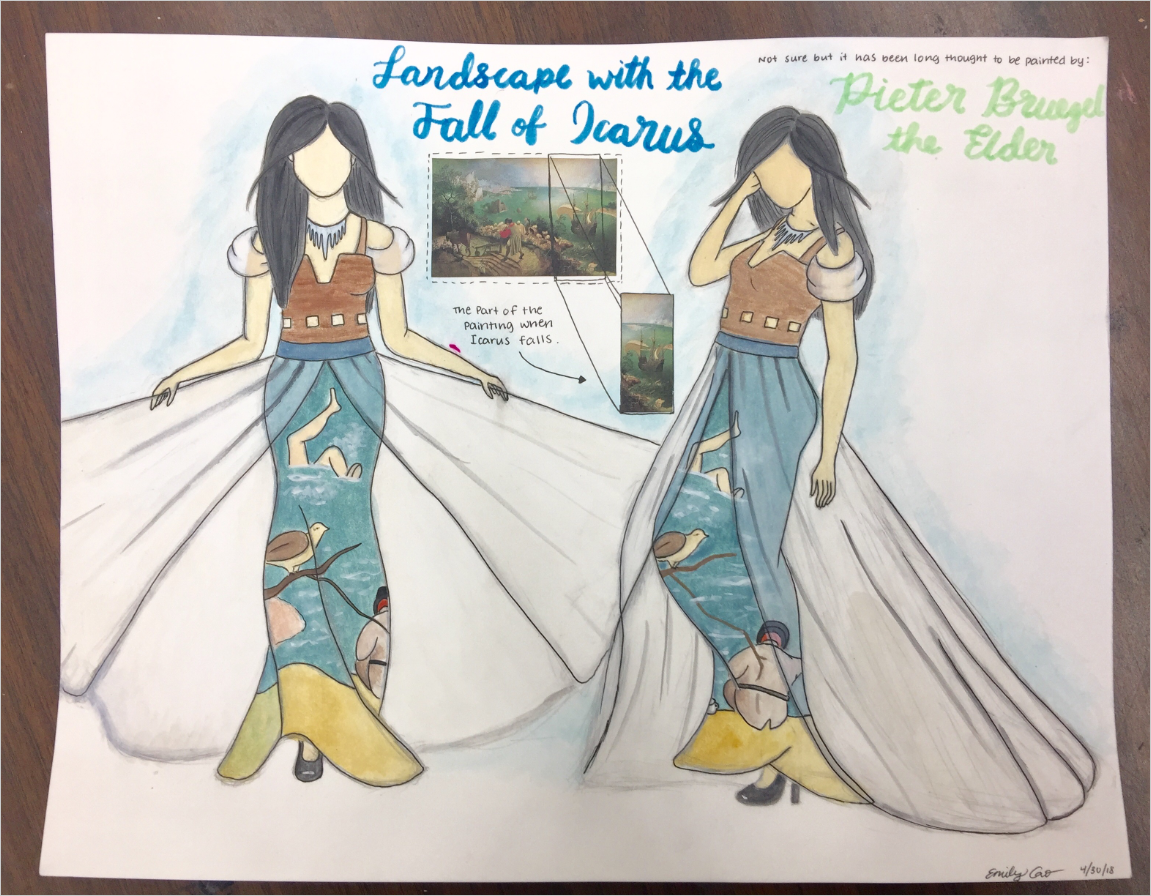 Landscape with the
Fall of Icarus
Not sure but it has been long thought to be painted by:
Pieter Bruegel
the Elder
The part of the
painting when
Icarus falls.
Emily Cao 4/30/18